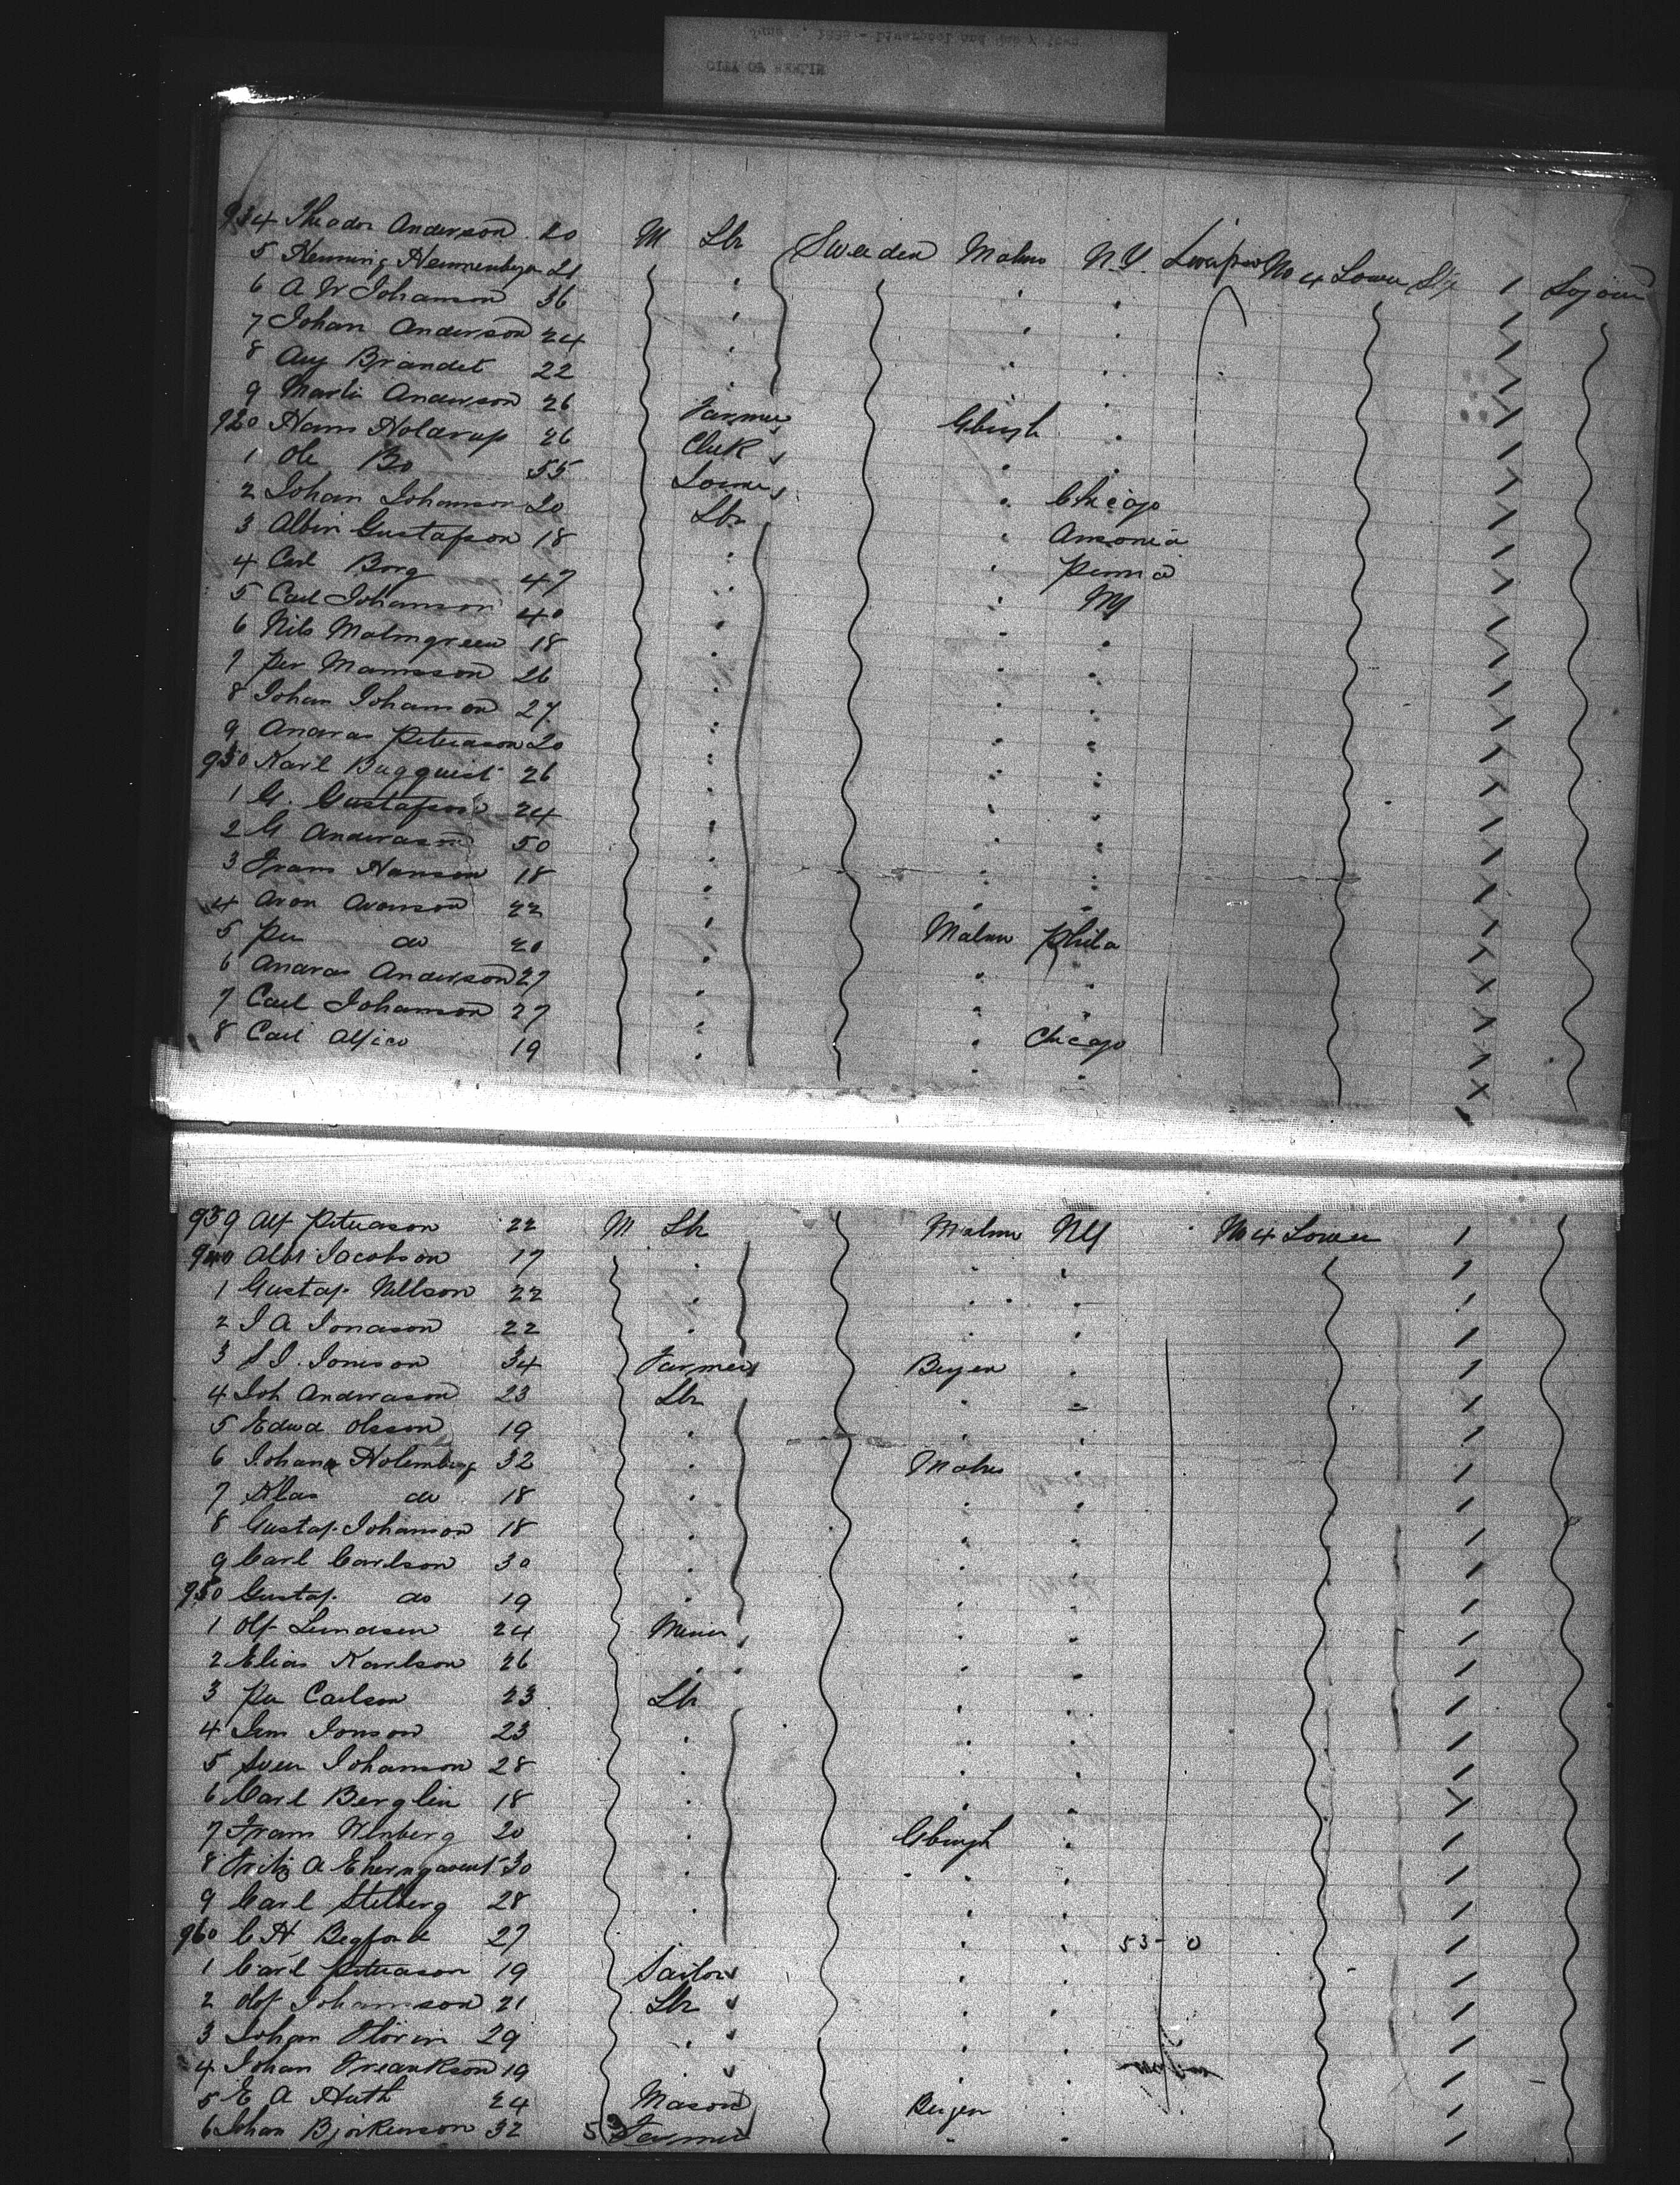 CITY OF BERLIN
934 Theodor Anderson 20 M Lbr Sweden Malmo N.Y. Liverpool No 4 Lower 1 Sojourn
5 Henning 21
6 A W Johanson 36
7 Johan Anderson 24
8 Aug Brandet 22
9 Martin Anderson 26 Farmer Gburgh
920 Hans Holdrup 26 Clerk
1 Ole Bo 55 Chicago
2 Johan Johanson 20 Lbr Ansonia
3 Albin Gustafson 18 Penna
4 Carl Borg 47 NY
5 Carl Johanson 40
6 Nils Malmgreen 18
7 Per Mansson 26
8 Johan Johanson 27
9 Andras Peterason 20
930 Karl Bugquist 26
1 G. Gustafson 24
2 G Anderason 50
3 Frans Hanson 18
4 Aron Aronson 22
5 Per do 20 Malmo Phila
6 Andras Anderson 27
7 Carl Johanson 27
8 Carl 19 Chicago
939 Alf Peterason 22 M Lbr Malmo NY No 4 Lower 1
940 Albt Jacobson 17
1 Gustaf Nellson 22
2 J A Jonason 22
3 S J. Jonson 34 Farmer Bergen
4 Joh Anderason 23 Lbr
5 Edwd Olsson 19
6 Johan Holemberg 32 Malmo
7 Klas do 18
8 Gustaf Johanson 18
9 Carl Carlson 30
950 Gustaf do 19
1 Olf 24 Miner
2 Elias Karlson 26
3 Per Carlson 23 Lbr
4 Jonson 23
5 Sven Johanson 28
6 Carl Berglin 18
7 Frans Wenberg 20 Gburgh
8 Fritz A 30
9 Carl Stelberg 28
960 C H 27 53 - 0
1 Carl Peterason 19 Sailor
2 Olof Johanson 21 Lbr
3 Johan Florin 29
4 Johan Freankson 19
5 E A Huth 24 Mason Bergen
6 Johan Bjorkenson 32 53 Farmer